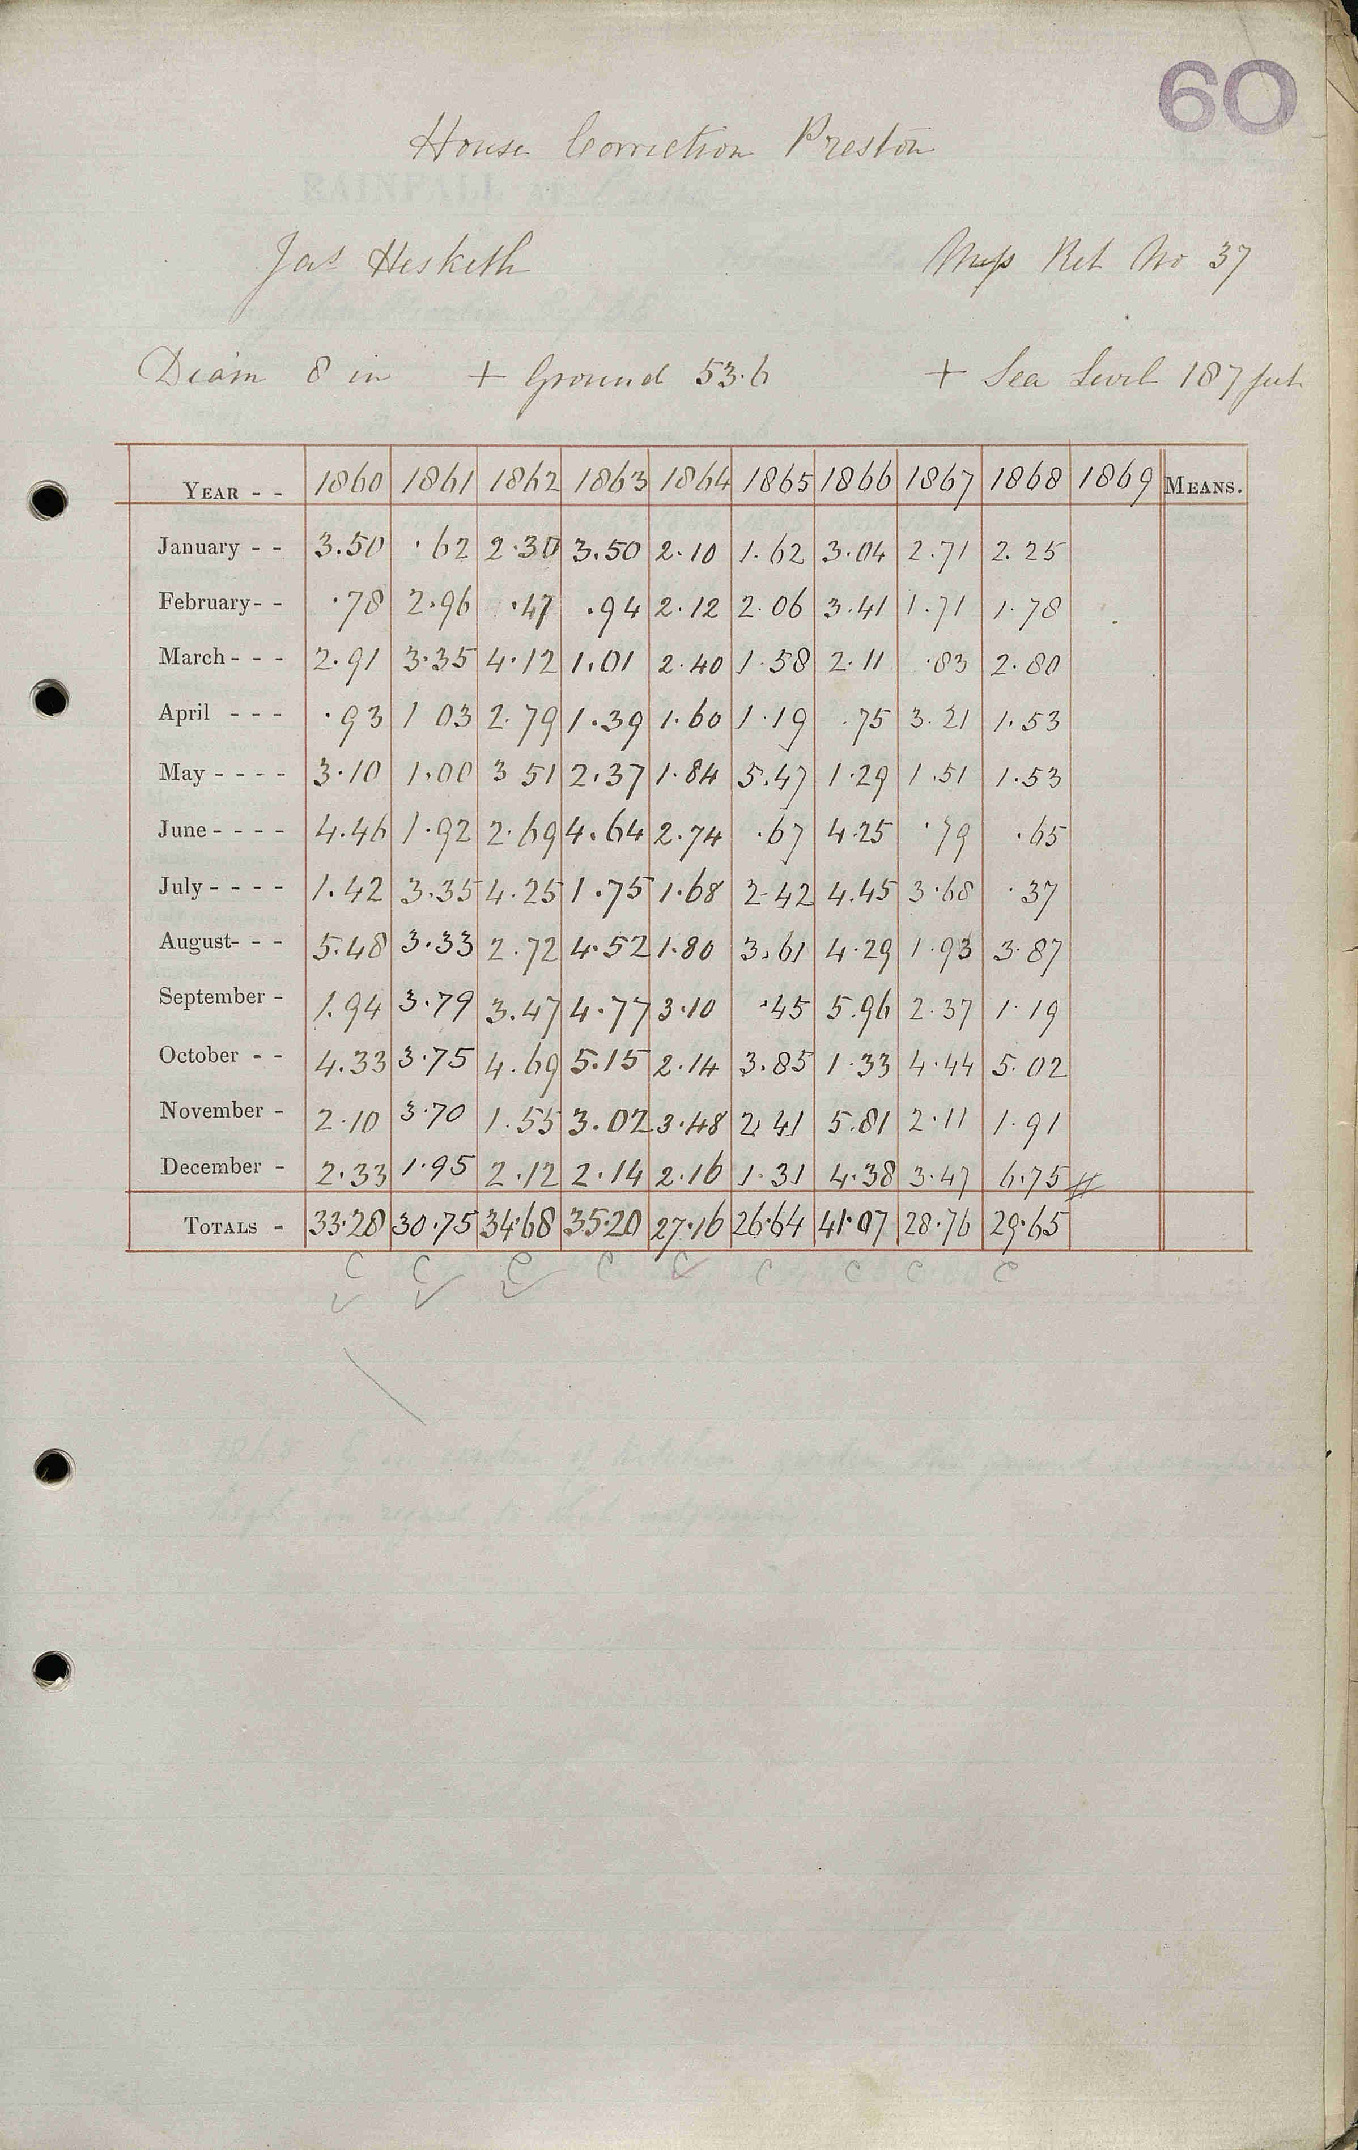 60
House Correction Preston
Jas Hesketh Map Ref No 37
Diam 8 in + Ground 53.6 + Sea Level 187 feet
YEAR - - 1860 1861 1862 1863 1864 1865 1866 1867 1868 1869 MEANS.
January - - 3.50 .62 2.30 3.50 2.10 1.62 3.04 2.71 2.25
February - - .78 2.96 .47 .94 2.12 2.06 3.41 1.71 1.78
March - - - 2.91 3.35 4.12 1.01 2.40 1.58 2.11 .83 2.80
April - - - .93 1 03 2.79 1.39 1.60 1.19 .75 3.21 1.53
May - - - - 3.10 1.00 3 51 2.37 1.84 5.47 1.29 1.51 1.53
June - - - - 4.46 1.92 2.69 4.64 2.74 .67 4.25 .79 .65
July - - - - 1.42 3.35 4.25 1.75 1.68 2.42 4.45 3.68 .37
August- - - 5.48 3.33 2.72 4.52 1.80 3.61 4.29 1.93 3.87
September - 1.94 3.79 3.47 4.77 3.10 .45 5.96 2.37 1.19
October - - 4.33 3.75 4.69 5.15 2.14 3.85 1.33 4.44 5.02
November - 2.10 3.70 1.55 3.02 3.48 2.41 5.81 2.11 1.91
December - 2.33 1.95 2.12 2.14 2.16 1.31 4.38 3.47 6.75
TOTALS - 33.28 30.75 34.68 35.20 27.16 26.64 41.07 28.76 29.65
C C C C C C C C C